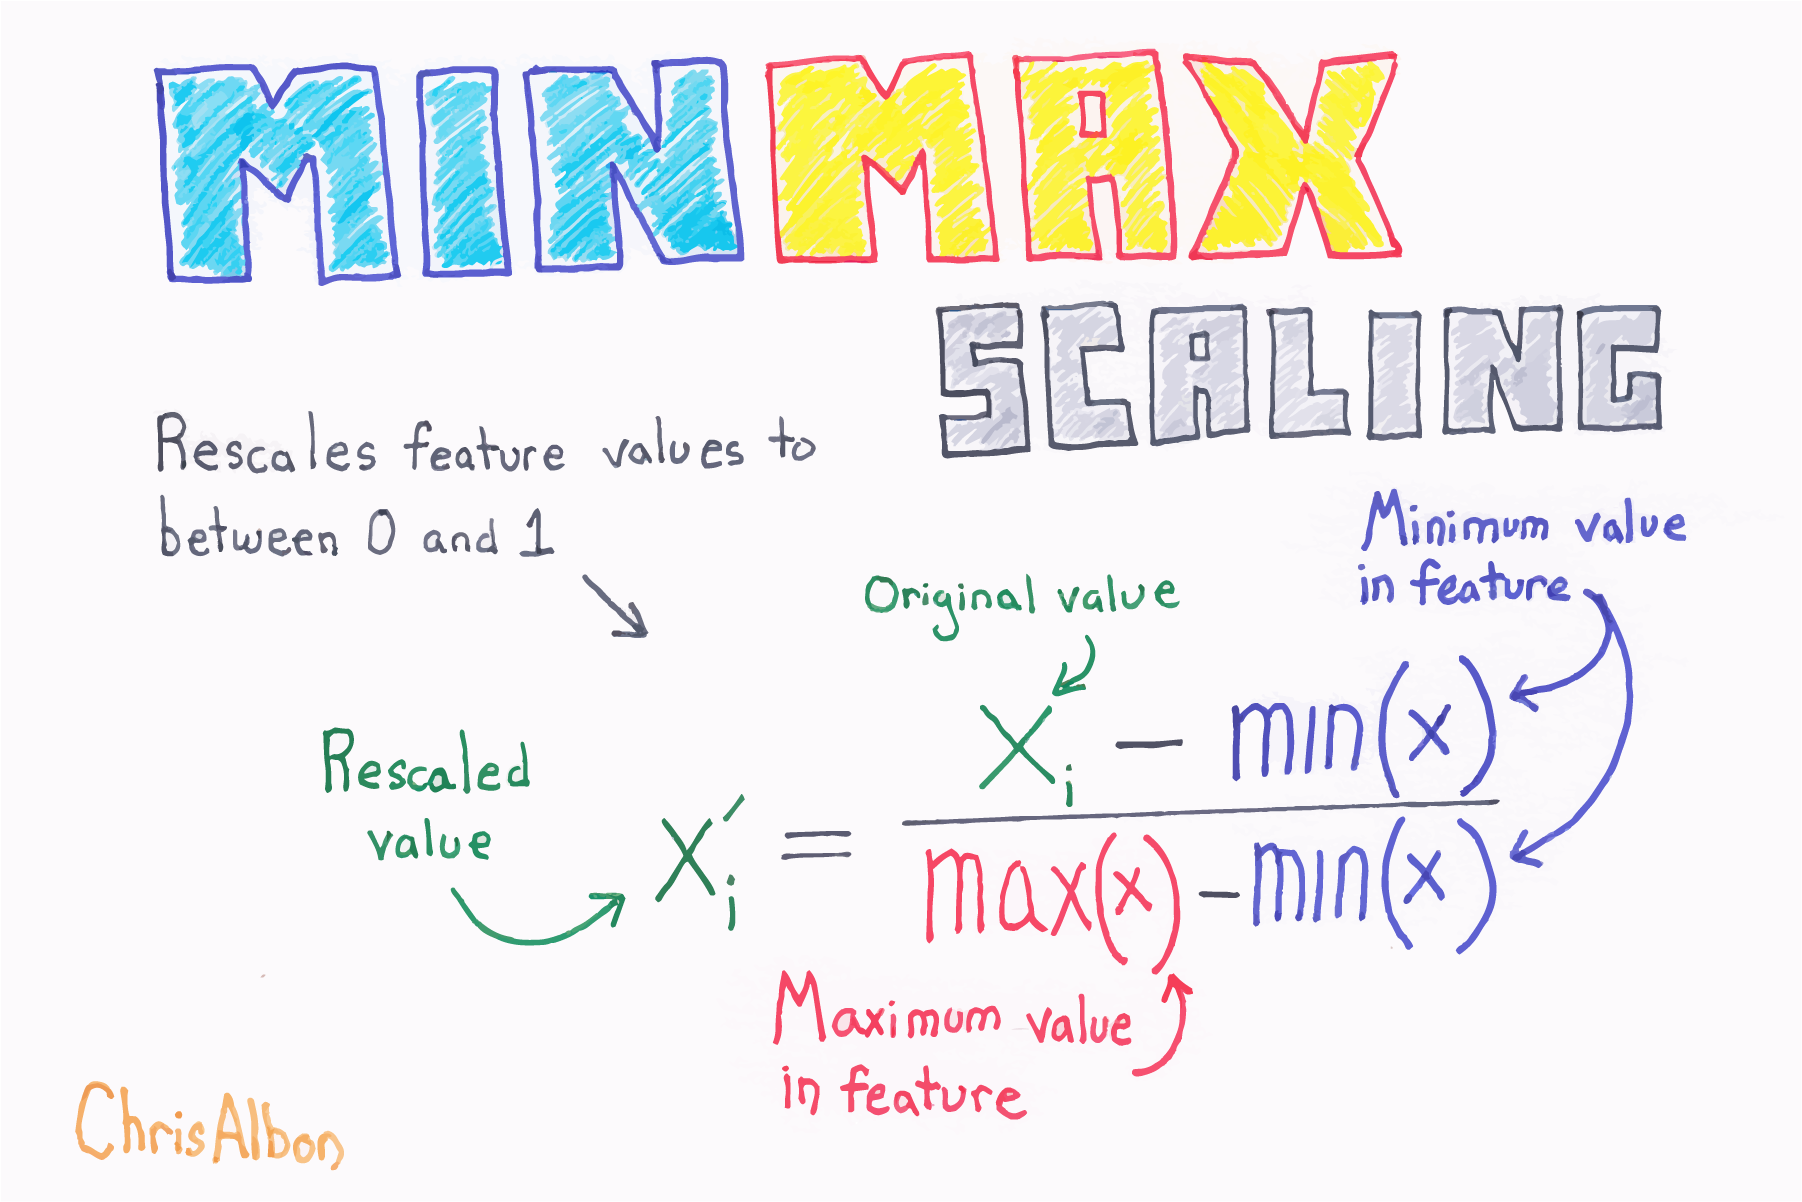 MINMAX
SCALING
Rescales feature values to
between 0 and 1
Minimum value
in feature
Original value
Rescaled
value
xᵢ′ = (xᵢ − min(x)) / (max(x) − min(x))
Maximum value
in feature
ChrisAlbon